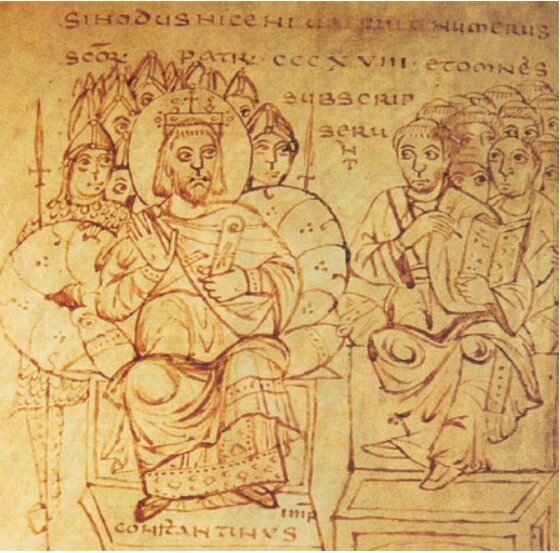 SINODUS NICENI UBI FUIT NUMERUS
SCŌR · PATR · CCCXVIII · ET OMNES
SUBSCRIP
SERU
N
T
IMP
CONSTANTINVS